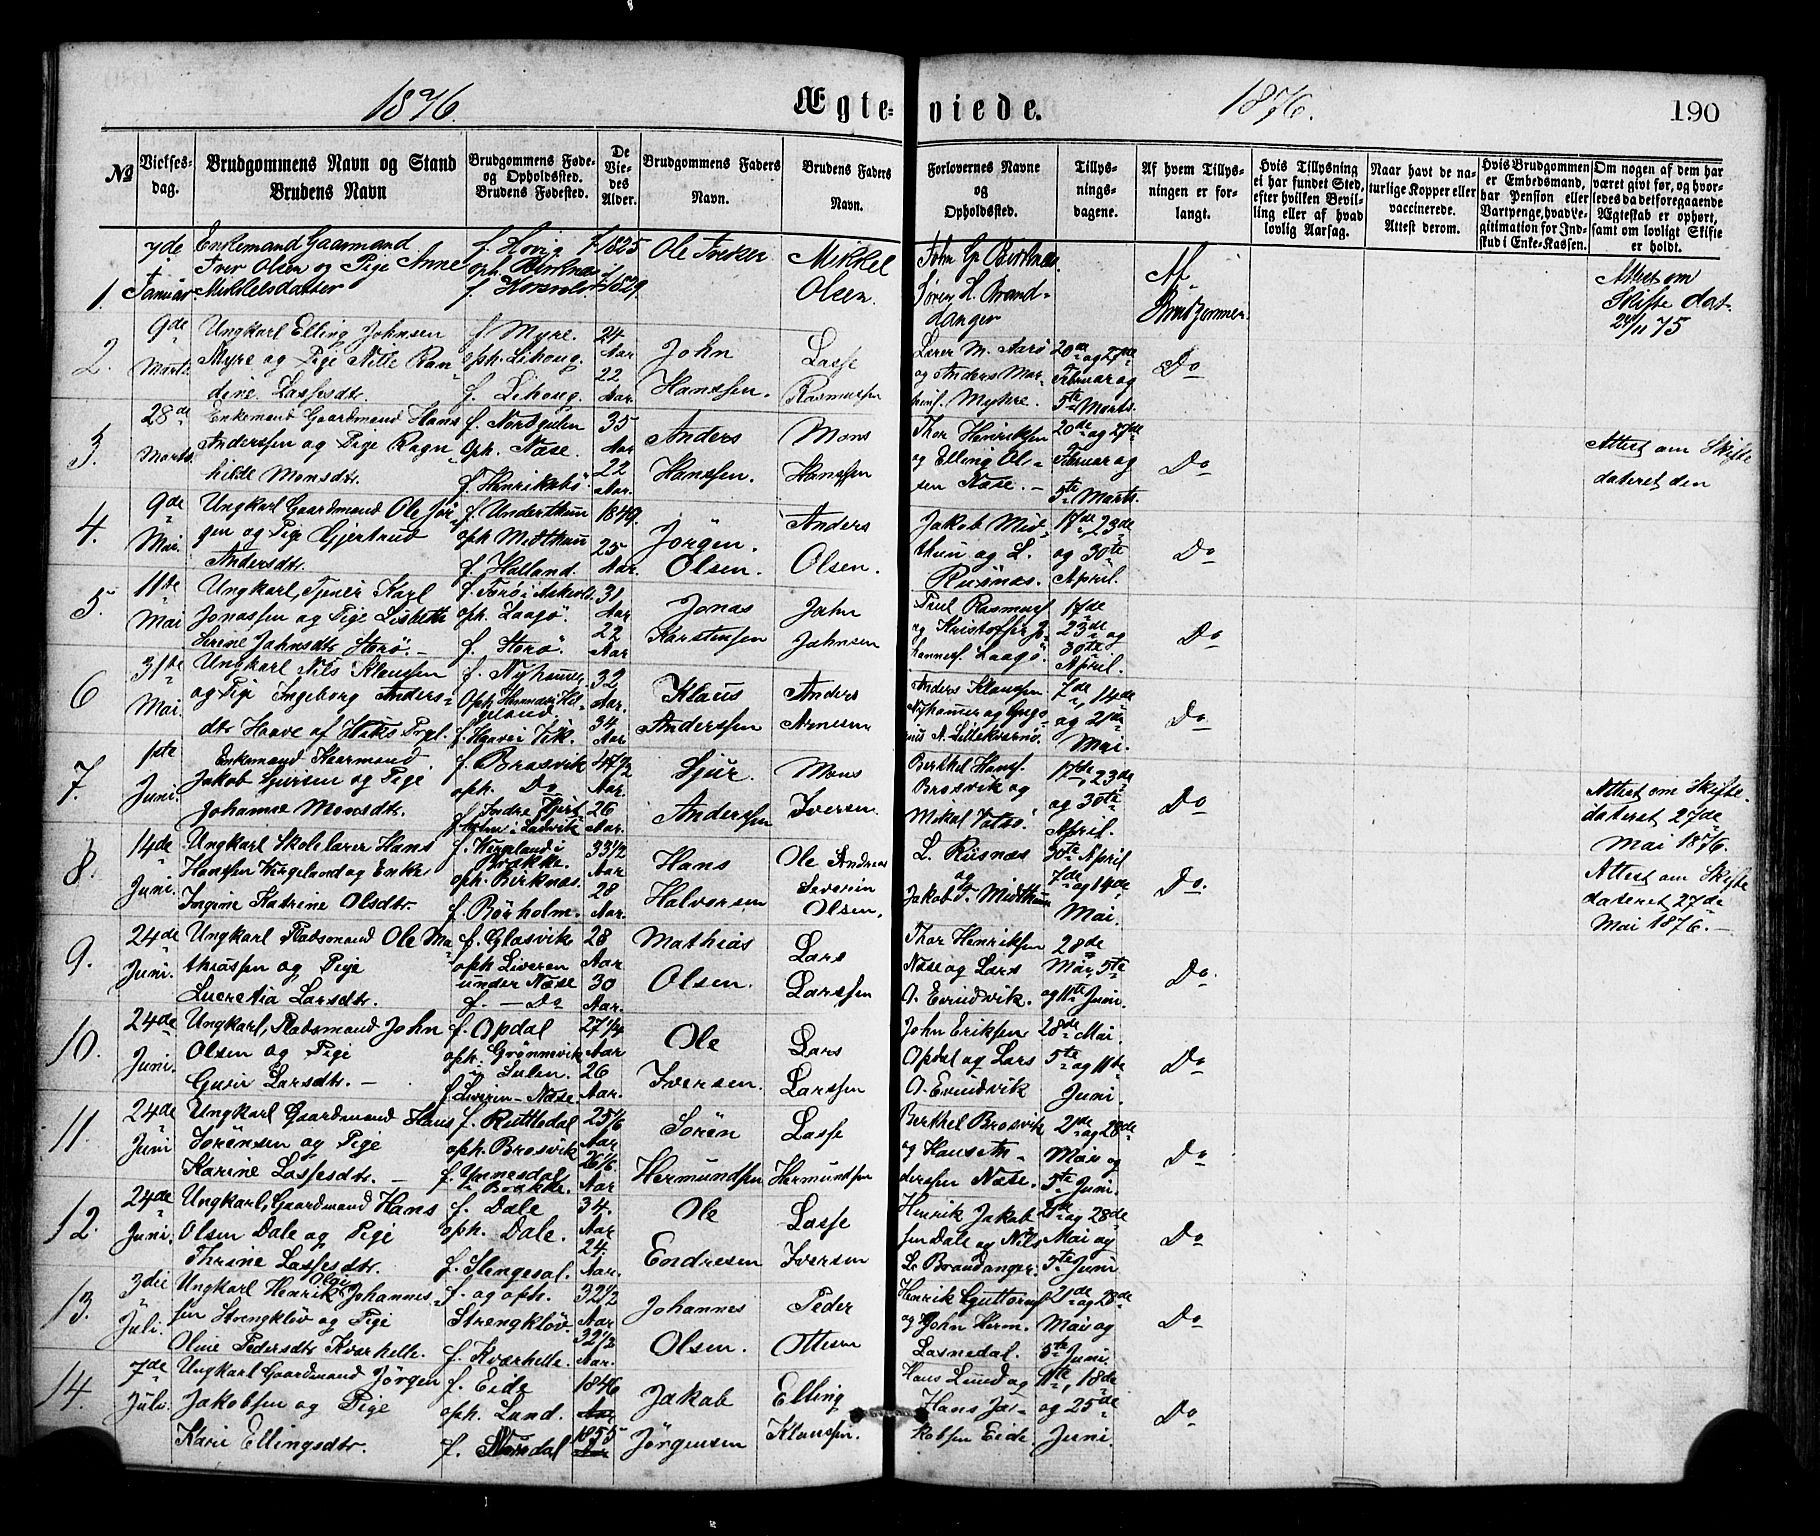 1876. Ægteviede. 1876. 190
№
Vielses-
dag.
Brudgommens Navn og Stand
Brudens Navn
Brudgommens Føde-
og Opholdsted.
Brudens Fødested.
De
Vie-
des
Alder.
Brudgommens Faders
Navn.
Brudens Faders
Navn.
Forlovernes Navne
og
Opholdsted.
Tillys-
nings-
dagene.
Af hvem Tillys-
ningen er for-
langt.
Hvis Tillysning
ei har fundet Sted,
efter hvilken Bevil-
ling eller af hvad
lovlig Aarsag.
Naar havt de na-
turlige Kopper eller
vaccinerede.
Attest derom.
Hvis Brudgommen
er Embedsmand,
har Pension eller
Vartpenge, hvad Le-
gitimation for Ind-
skud i Enke-Kassen.
Om nogen af dem har
været givt før, og hvor-
ledes da det foregaaende
Ægteskab er ophørt,
samt om lovligt Skifte
er holdt.
1.
7de
Januar
Enkemand Gaarmand
Iver Olsen og Pige Anne
Mikkelsdatter
f. Hovig
oph. Birknæs
1825
1829
Ole
Mikkel
Olsen.
John Gr. Birknæs.
Sören H. Brand-
anger
Af
Brudgommen
Attest om
Skifte dat.
24/11 75
2.
9de
Marts
Ungkarl Elling Johnsen
Myre og Pige Nille Ran-
dine Lassesdtr.
f. Myre.
oph. Lihoug.
f. Lihoug.
24
Aar
22
Aar.
John
Hanssen.
Lasse
Rasmussen
Lærer M. Aarö
og Anders Mar-
Myhre.
20de og 27de
Februar og
5te Marts.
Do
3.
28de
Marts
Enkemand Gaardmand Hans
Anderssen og Pige Ragn-
hilde Monsdtr.
f. Nordgulen
Oph. Næse.
f. Henriksbö
35
Aar
22
Aar.
Anders
Hanssen.
Mons
Hanssen
Thor Henriksen
og Elling Ol-
sen Næse. -
20de og 27de
Februar og
5te Marts.
Do
Attest om Skifte
dateret den
4.
9de
Mai.
Ungkarl Gaardmand Ole Jör-
gen og Pige Gjertrud
Andersdtr.
f. Underthun
oph Midthun
f. Halland.
1849.
25
Aar.
Jörgen.
Olsen.
Anders
Olsen.
Jakob Mid-
thun og L.
Risnæs.
17de, 23de
og 30te
April.
Do
5.
11te
Mai
Ungkarl, Tjener Karl
Jonassen og Pige Lisbeth
Serine Jahnsdtr Storö. -
f. Forö i Askvold.
oph. Laagö.
f. Storö.
31
Aar
22
Aar
Jonas
Karstensen
Jahn
Jahnsen
Poul Rasmuss
og Kristoffer Jo-
hannes. Laagö.
17de
23de og
30te
April.
Do
6
31te
Mai.
Ungkarl Nils Klaussen
og Pige Ingeborg Anders-
dtr Haave af Viks Prgl.
f. Nyhammer
f. Haave i Vik.
32
Aar.
34
Aar
Klaus
Anderssen
Anders
Arnesen
Anders Klaussen
Nyhammer og
7de, 14de
og 21de
Mai.
Do
7.
1ste
Juni.
Enkemand Kaarmand
Jakob Sjursen og Pige
Johanne Monsdtr.
f. Brosvik
oph. Do
f. Indre
i Ladvik
47 1/2
Aar.
26
Aar.
Sjur
Anderssen
Mons
Iversen
Berthel Hans.
Brosvik og
Mikal Vatsö.
17de, 23de
og 30te
April.
Do
Attest om Skifte.
dateret 27de
Mai 1876.
8.
14de
Juni.
Ungkarl Skolelærer Hans
Hanssen Vergeland og Enke
Ingine Katrine Olsdtr.
f. Vergeland i
Brække.
oph. Birknæs.
f. Börholm.
33 1/2
Aar
28
Aar.
Hans
Halvorsen
Ole Andreas
Severin
Olsen.
L. Risnæs
og
Jakob T. Midthun
30te April
7de og 14de
Mai.
Do.
Attest om Skifte
dateret 27de
Mai 1876. -
9.
24de
Juni.
Ungkarl Pladsmand Ole Ma-
thiassen og Pige
Lucretia Larsdtr.
f. Glasvik
oph. Liveren
under Næse
f. - Do
28
Aar
30
Aar.
Mathias
Olsen.
Lars
Larssen
Thor Henriksen
Næse og Lars
O. Evindvik.
28de
Mai, 5te
og 11te Juni.
Do.
10.
24de
Juni.
Ungkarl, Pladsmand John
Olsen og Pige
Guri Larsdtr. -
f. Opdal
oph. Grönnevik
i Sulen.
f. Liveren - Næse.
27 1/4
Aar
26
Aar.
Ole
Iversen.
Lars
Larssen
John Eriksen
Opdal og Lars
O. Evindvik
28de Mai.
5te og 11te
Juni.
Do
11.
24de
Juni
Ungkarl Gaardmand Hans
Sörensen og Pige
Karine Lassesdtr. -
f. Rutledal
oph. Brosvik
f. Ynnesdal
i Brække.
25 1/6
Aar
26 1/6.
Aar
Sören
Hermundsen
Lasse
Hermundsen
Berthel Brosvik
og Hans An-
dersen Næse.
21de og 28de
Mai og
5te Juni.
Do
12.
24de
Juni.
Ungkarl, Gaardmand Hans
Olsen Dale og Pige
Thrine Lassesdtr.
f. Dale
oph. Dale.
f. Stengesal.
34.
Aar
24.
Aar.
Ole
Endresen
Lasse
Iversen
Henrik Jakob-
sen Dale og Nils
L. Brandanger.
21de og 28de
Mai og
5te Juni
Do
13.
3die
Juli.
Ungkarl Henrik Johannes-
sen Strengklöv og Pige
Oline Pedersdtr Kværhelle.
f. og oph.
Strengklöv.
f. Kværhelle.
32 1/2
Aar
32 1/2
Aar.
Johannes
Olsen.
Peder
Ottesen
Henrik Guttorms
og John Herm.
21de og 28de
Mai og
5te Juni.
Do
14.
7de
Juli.
Ungkarl Gaardmand Jörgen
Jakobsen og Pige
Kari Ellingsdtr.
f. Eide
oph. Lund.
f.
1846
Aar
1855
Jakob
Jörgensen
Elling
Klaussen.
Hans Lund og
Hans Ja-
kobsen Eide.
11te, 18de
og 25de
Juni.
Do